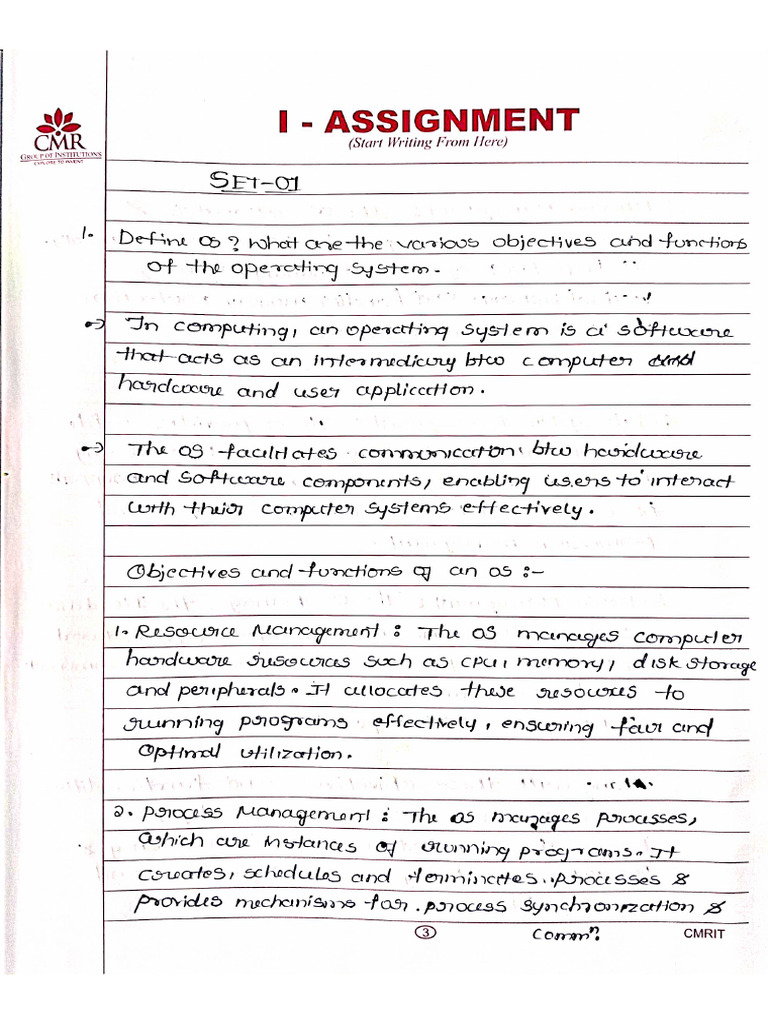 CMR
GROUP OF INSTITUTIONS
EXPLORE TO INVENT
I - ASSIGNMENT
(Start Writing From Here)
SET-01
1. Define OS? What are the various objectives and functions
of the operating system.
→ In computing, an operating system is a software
that acts as an intermediary btw computer
hardware and user application.
→ The OS facilitates communication btw hardware
and software components, enabling users to interact
with their computer systems effectively.
Objectives and functions of an OS :-
1. Resource Management : The OS manages computer
hardware resources such as CPU, memory, disk storage
and peripherals. It allocates these resources to
running programs effectively, ensuring fair and
optimal utilization.
2. Process Management : The OS manages processes,
which are instances of running programs. It
creates, schedules and terminates processes &
provides mechanisms for process synchronization &
commⁿ.
3
CMRIT